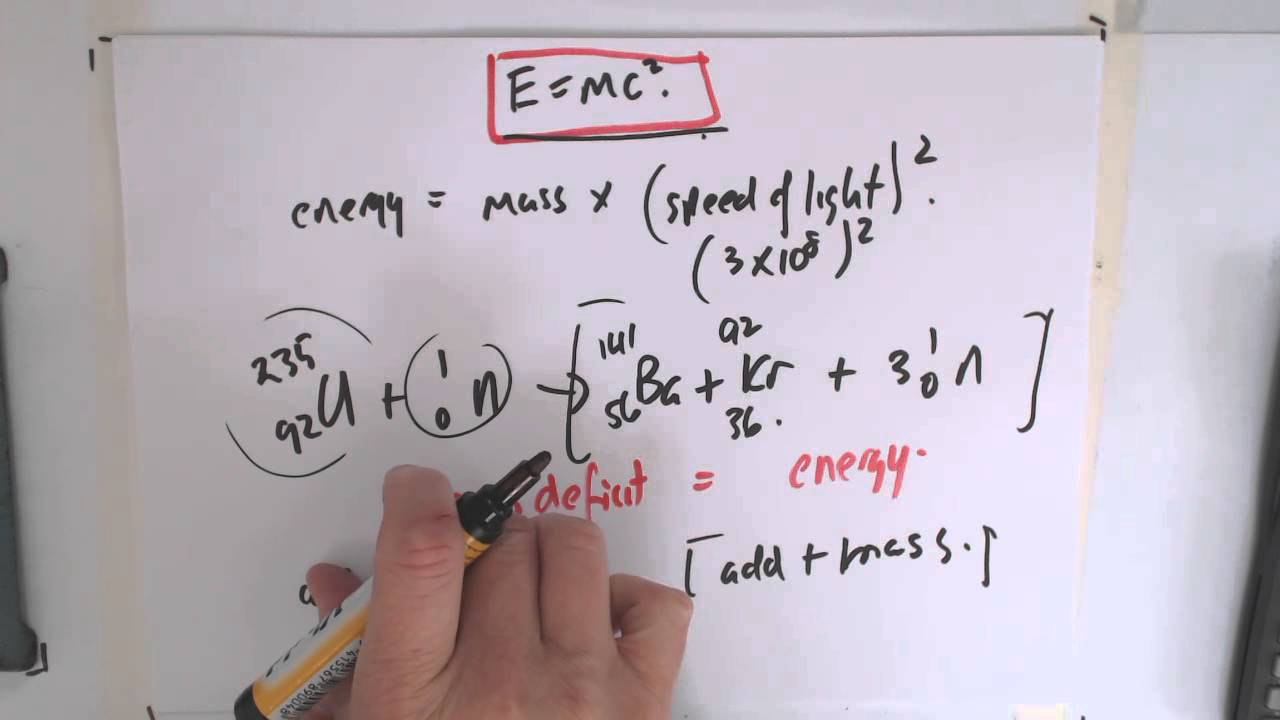 E = mc².
energy = mass × (speed of light)².
(3 × 10⁸)²
²³⁵₉₂U + (¹₀n) → [¹⁴¹₅₆Ba + ⁹²₃₆Kr + 3¹₀n]
deficit = energy.
[add + mass.]